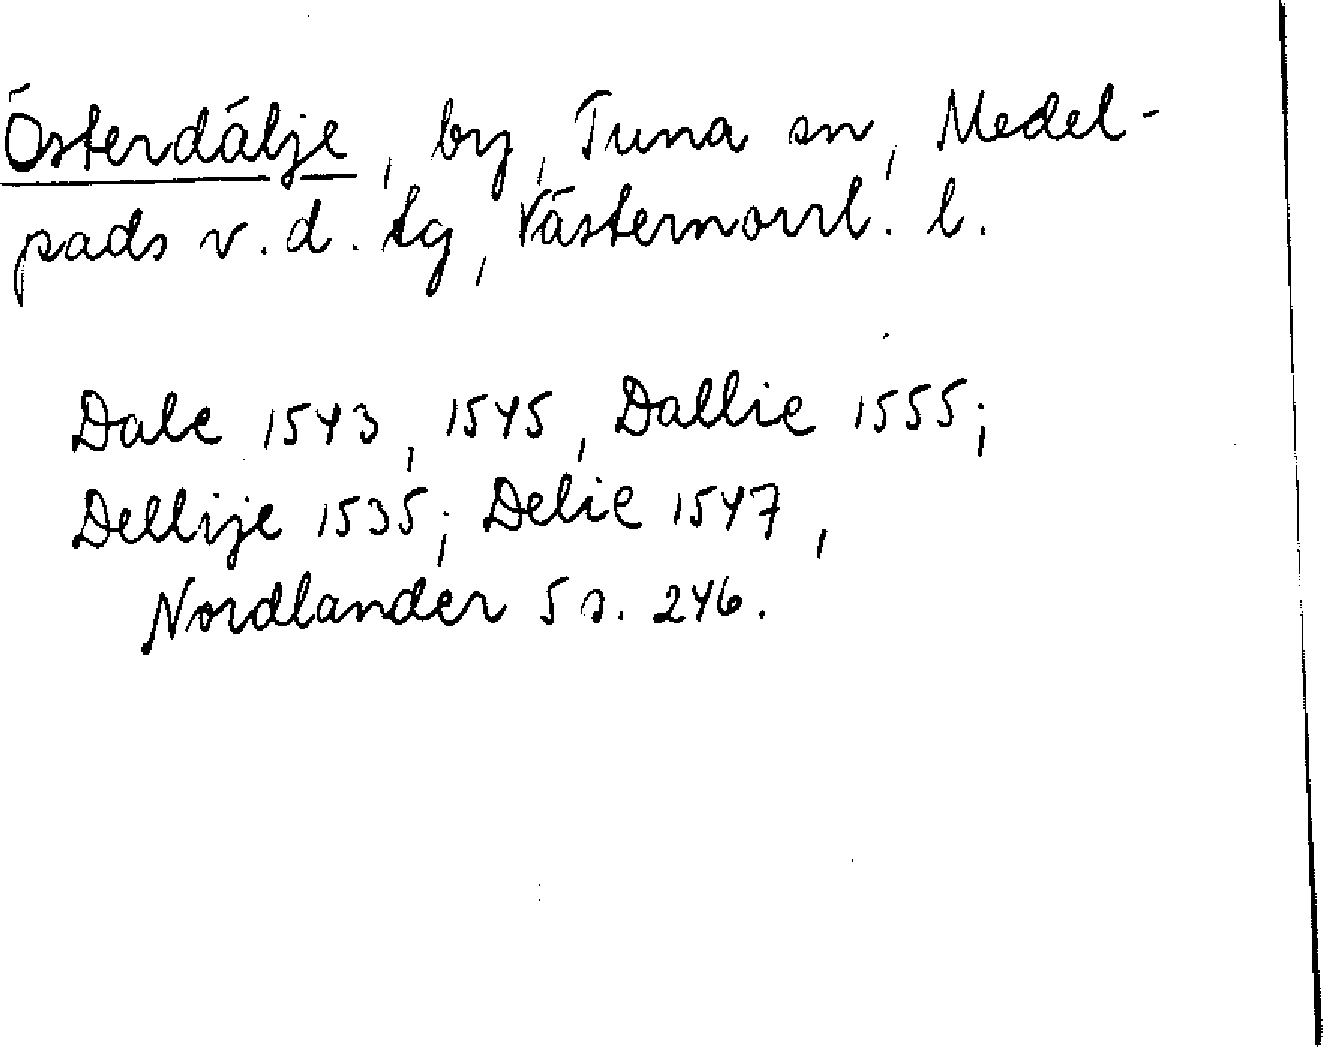 Österdälje, by, Tuna sn, Medel-
pads v. d. tg, Västernorrl. l.
Dale 1543, 1545, Dallie 1555;
Dellije 1535; Delie 1547,
Nordlander 5 s. 246.